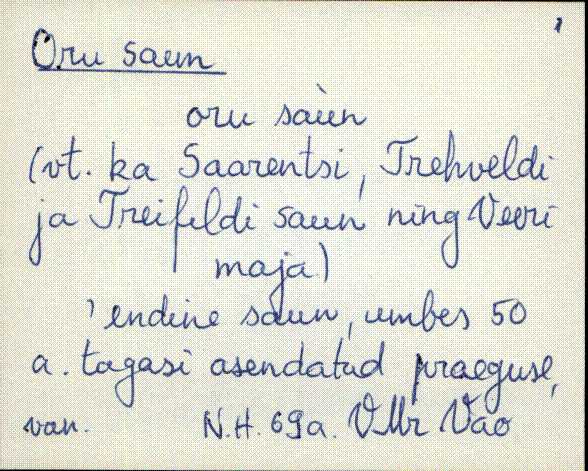 1
Oru saun
oru sàun
(vt. ka Saarentsi, Trehveldi
ja Treifeldi saun ning Veeri
maja)
'endine saun, umbes 50
a. tagasi asendatud praeguse,
van. N.H. 69a. VMr Vao